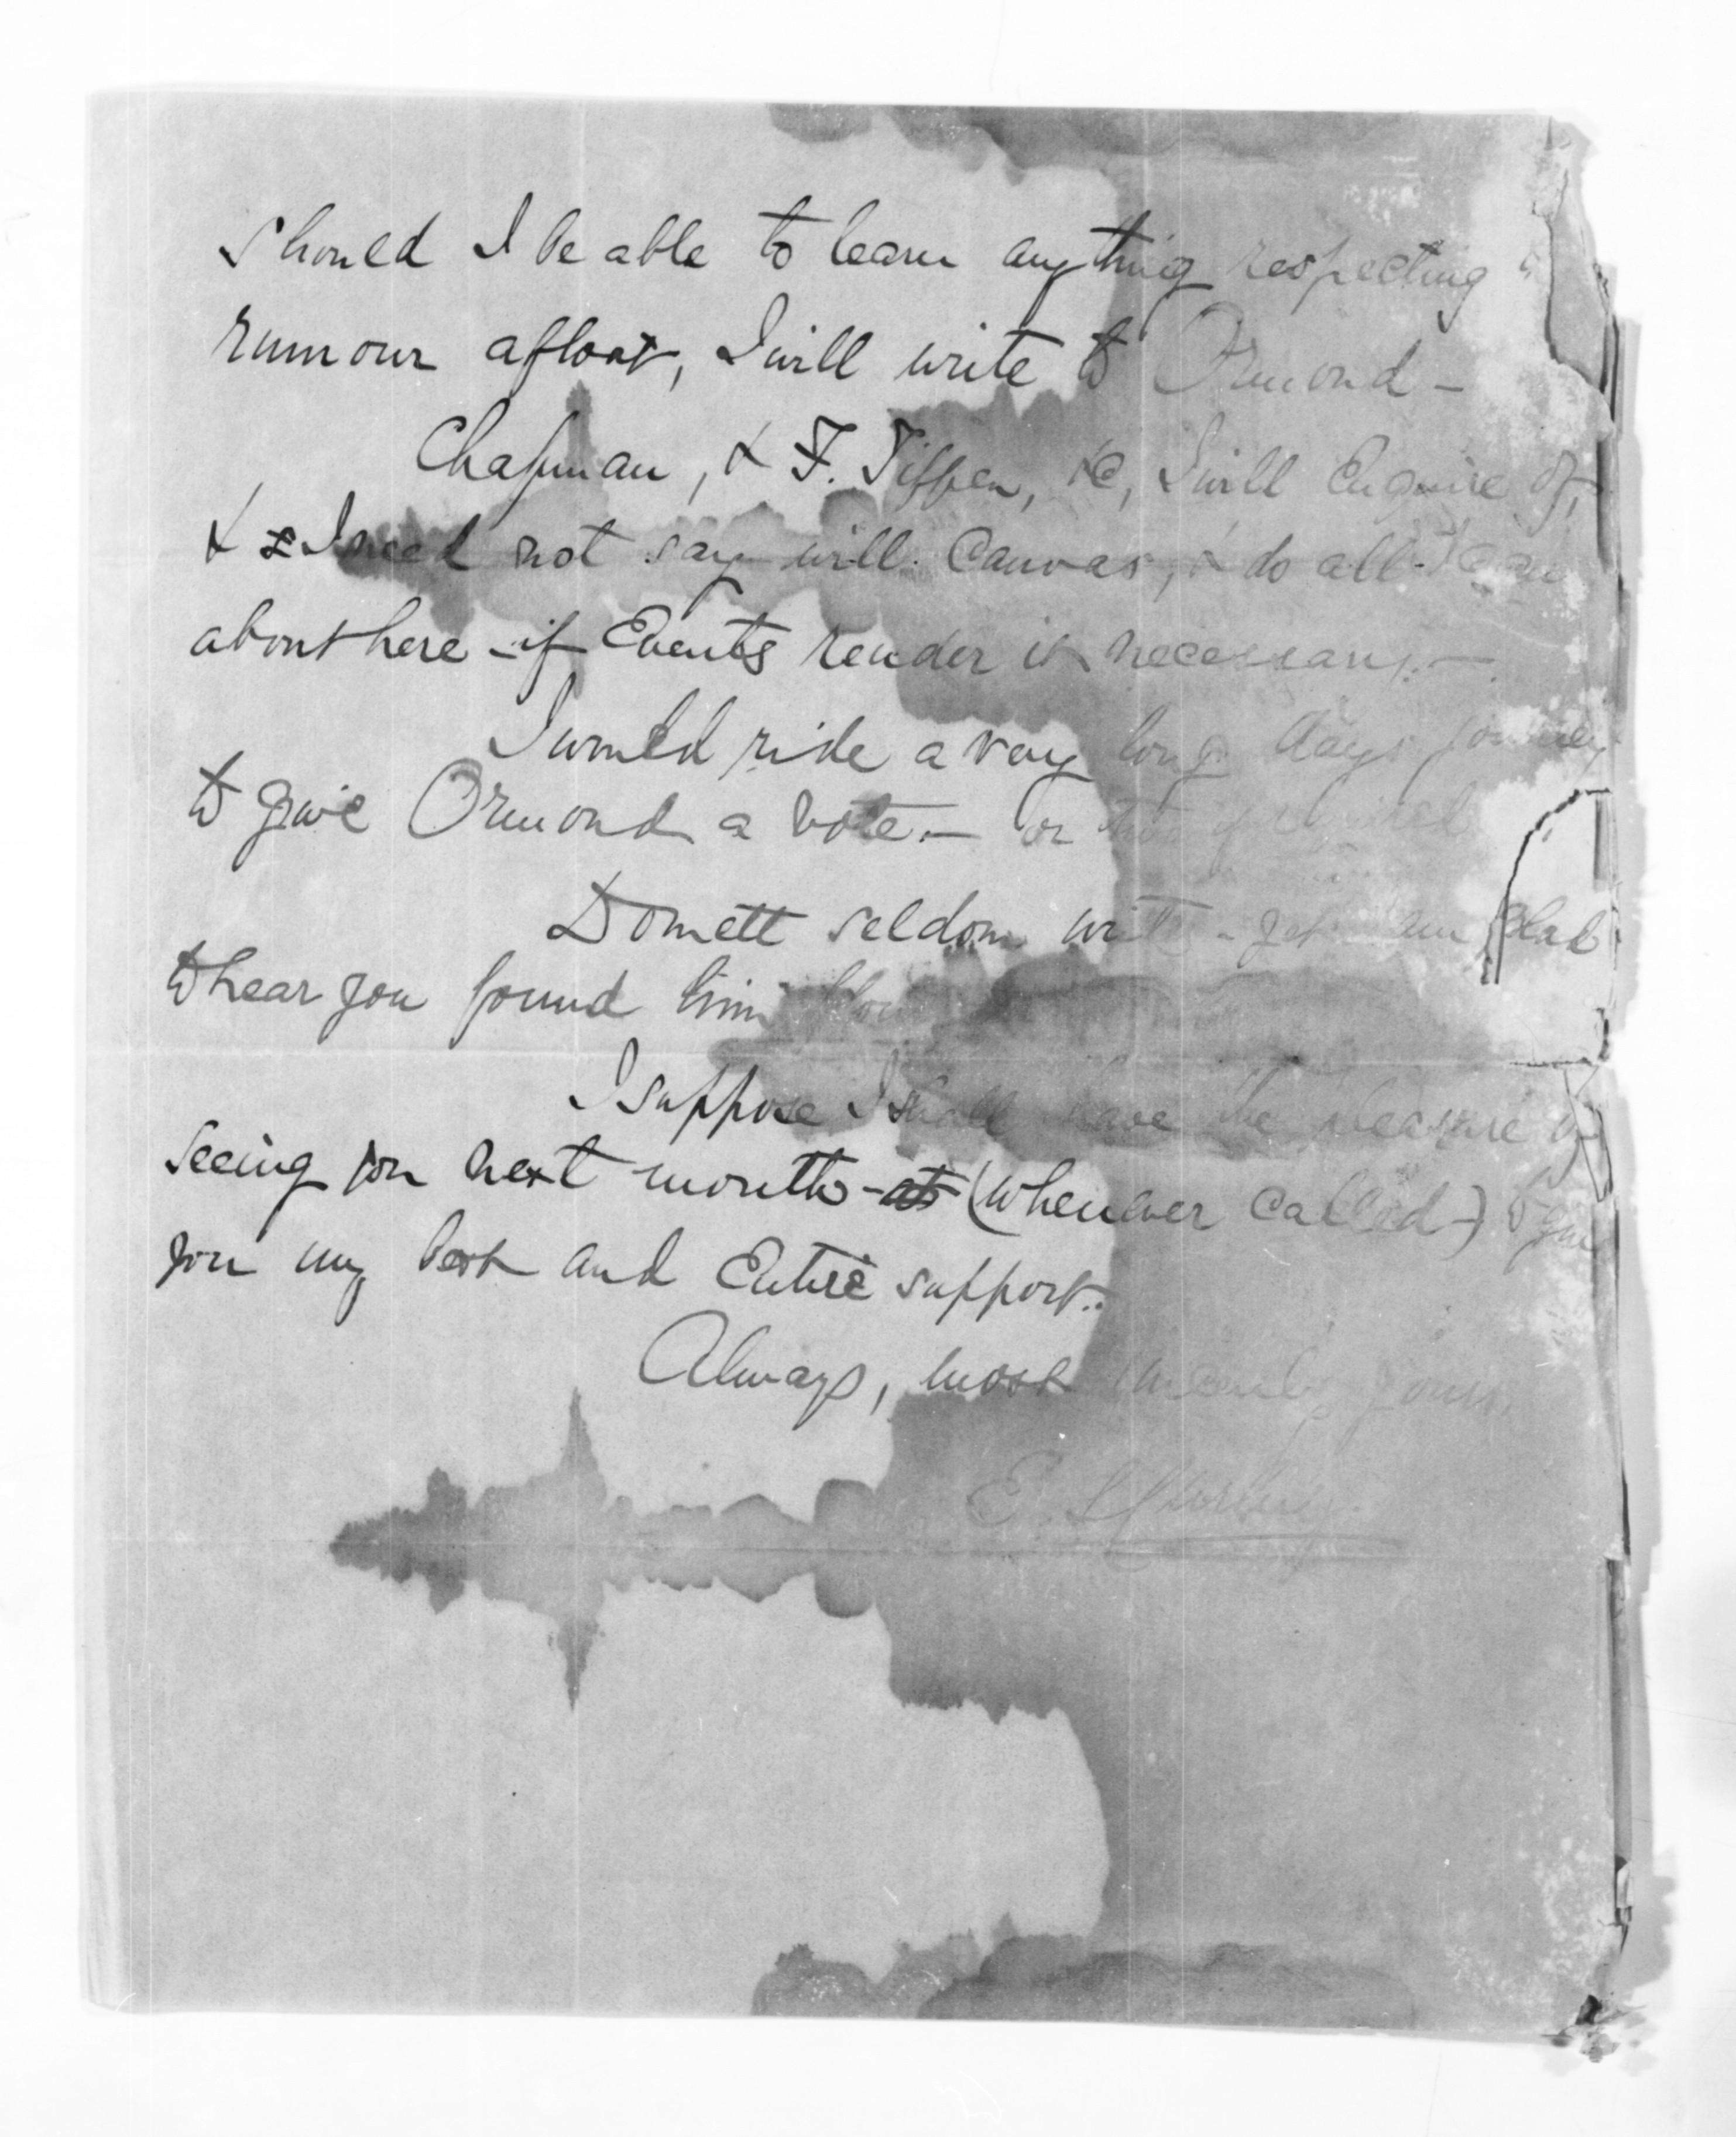 Should I be able to learn anything respecting
rumour afloat, I will write to Ormond -
Chapman, & F. Tiffen, &c, I will Enquire of,
& I need not say will Canvas, & do all I can
about here - if Events render it necessary. -
I would ride a very long days journey
to give Ormond a vote. - or
Domett seldom - yet am glad
to hear you found him
I suppose I shall have the pleasure of
seeing you next month - at (whenever called -) to give
you my best and Entire support.
Always, most sincerely yours,
E.